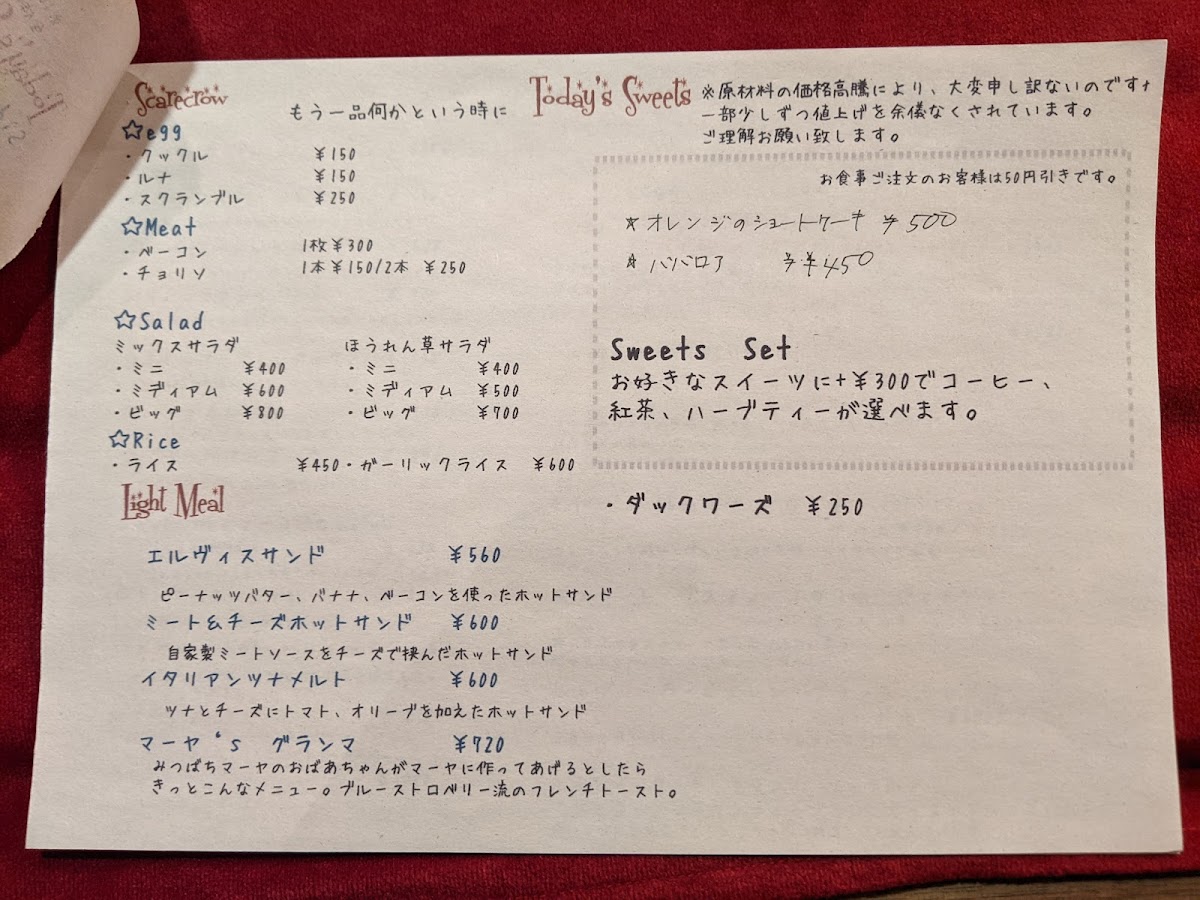 Scarecrow もう一品何かという時に
☆egg
・クックル ¥150
・ルナ ¥150
・スクランブル ¥250
☆Meat
・ベーコン 1枚¥300
・チョリソ 1本¥150/2本 ¥250
☆Salad
ミックスサラダ ほうれん草サラダ
・ミニ ¥400 ・ミニ ¥400
・ミディアム ¥600 ・ミディアム ¥500
・ビッグ ¥800 ・ビッグ ¥700
☆Rice
・ライス ¥450・ガーリックライス ¥600
Light Meal
エルヴィスサンド ¥560
ピーナッツバター、バナナ、ベーコンを使ったホットサンド
ミート&チーズホットサンド ¥600
自家製ミートソースをチーズで挟んだホットサンド
イタリアンツナメルト ¥600
ツナとチーズにトマト、オリーブを加えたホットサンド
マーヤ‘s グランマ ¥720
みつばちマーヤのおばあちゃんがマーヤに作ってあげるとしたら
きっとこんなメニュー。ブルーストロベリー流のフレンチトースト。
Today's Sweets
※原材料の価格高騰により、大変申し訳ないのです
一部少しずつ値上げを余儀なくされています。
ご理解お願い致します。
お食事ご注文のお客様は50円引きです。
☆オレンジのショートケーキ ¥500
☆ババロア ¥450
Sweets Set
お好きなスイーツに+¥300でコーヒー、
紅茶、ハーブティーが選べます。
・ダックワーズ ¥250